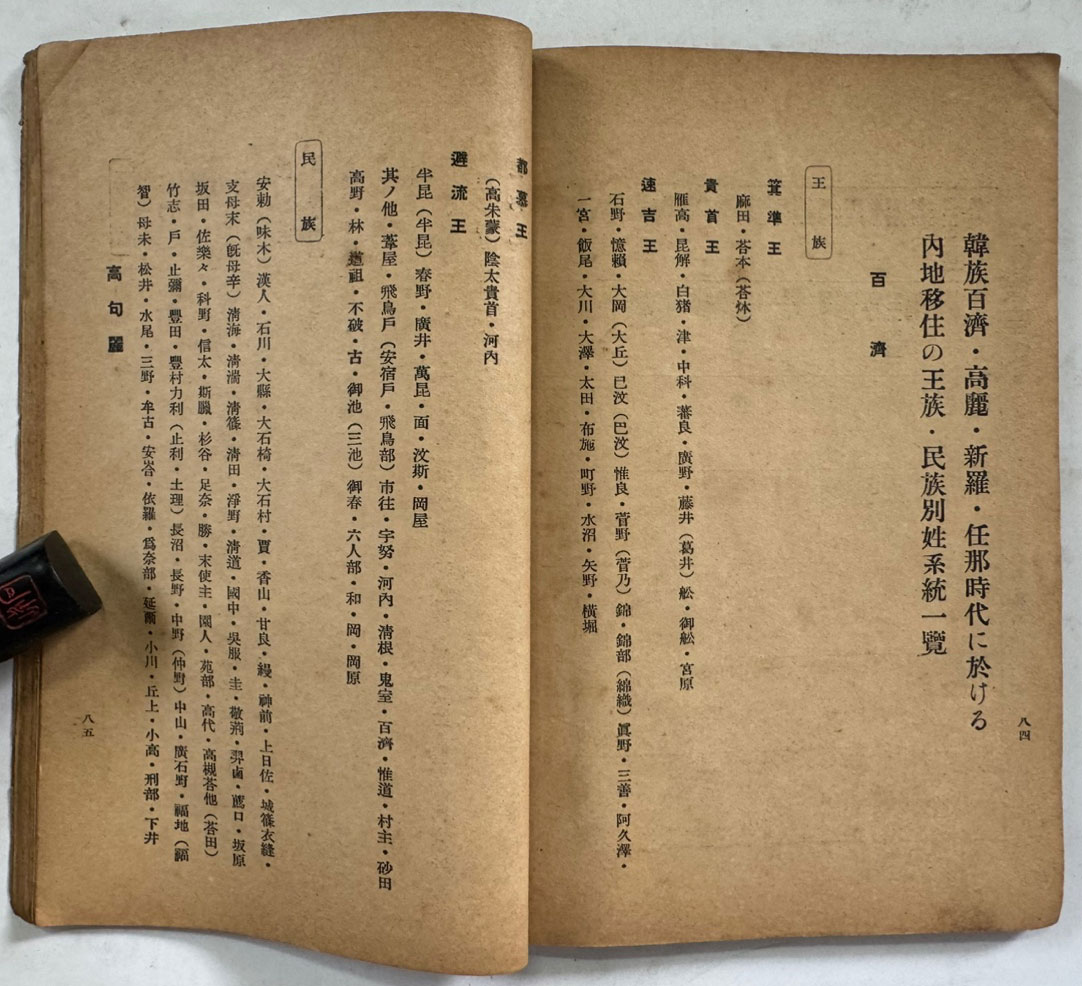 八四
韓族百濟・高麗・新羅・任那時代に於ける
內地移住の王族・民族別姓系統一覽
百濟
王族
箕準王
麻田・荅本（荅㶱）
雁高・昆解・白猪・津・中科・蕃良・廣野・藤井（葛井）舩・御舩・宮原
貴首王
速吉王
石野・憶賴・大岡（大丘）巳汶（巴汶）惟良・菅野（菅乃）錦・錦部（綿織）眞野・三善・阿久澤・
一宮・飯尾・大川・大澤・太田・布施・町野・水沼・矢野・橫堀
都慕王
（高朱蒙）陰太貴首・河內
避流王
半毘（半毘）春野・廣井・萬昆・面・汶斯・岡屋
其ノ他・葦屋・飛鳥戶（安宿戶・飛鳥部）市往・宇努・河內・淸根・鬼室・百濟・惟道・村主・砂田
高野・林・道祖・不破・古・御池（三池）御春・六人部・和・岡・岡原
民族
安勅（味木）漢人・石川・大縣・大石椅・大石村・賈・香山・甘良・縵・神前・上日佐・城篠衣縫・
支母末（旣母辛）淸海・淸湍・淸篠・淸田・淨野・淸道・國中・吳服・圭・敬荊・羿鹵・廌口・坂原
坂田・佐樂々・科野・信太・斯𦡱・杉谷・足奈・勝・末使主・園人・苑部・高代・高槻荅他（荅田）
竹志・戶・止彌・豐田・豐村力利（止利・土理）長沼・長野・中野（仲野）中山・廣石野・福地（福
智）母未・松井・水尾・三野・牟古・安峇・依羅・爲奈部・延爾・小川・丘上・小高・刑部・下井
高句麗
八五